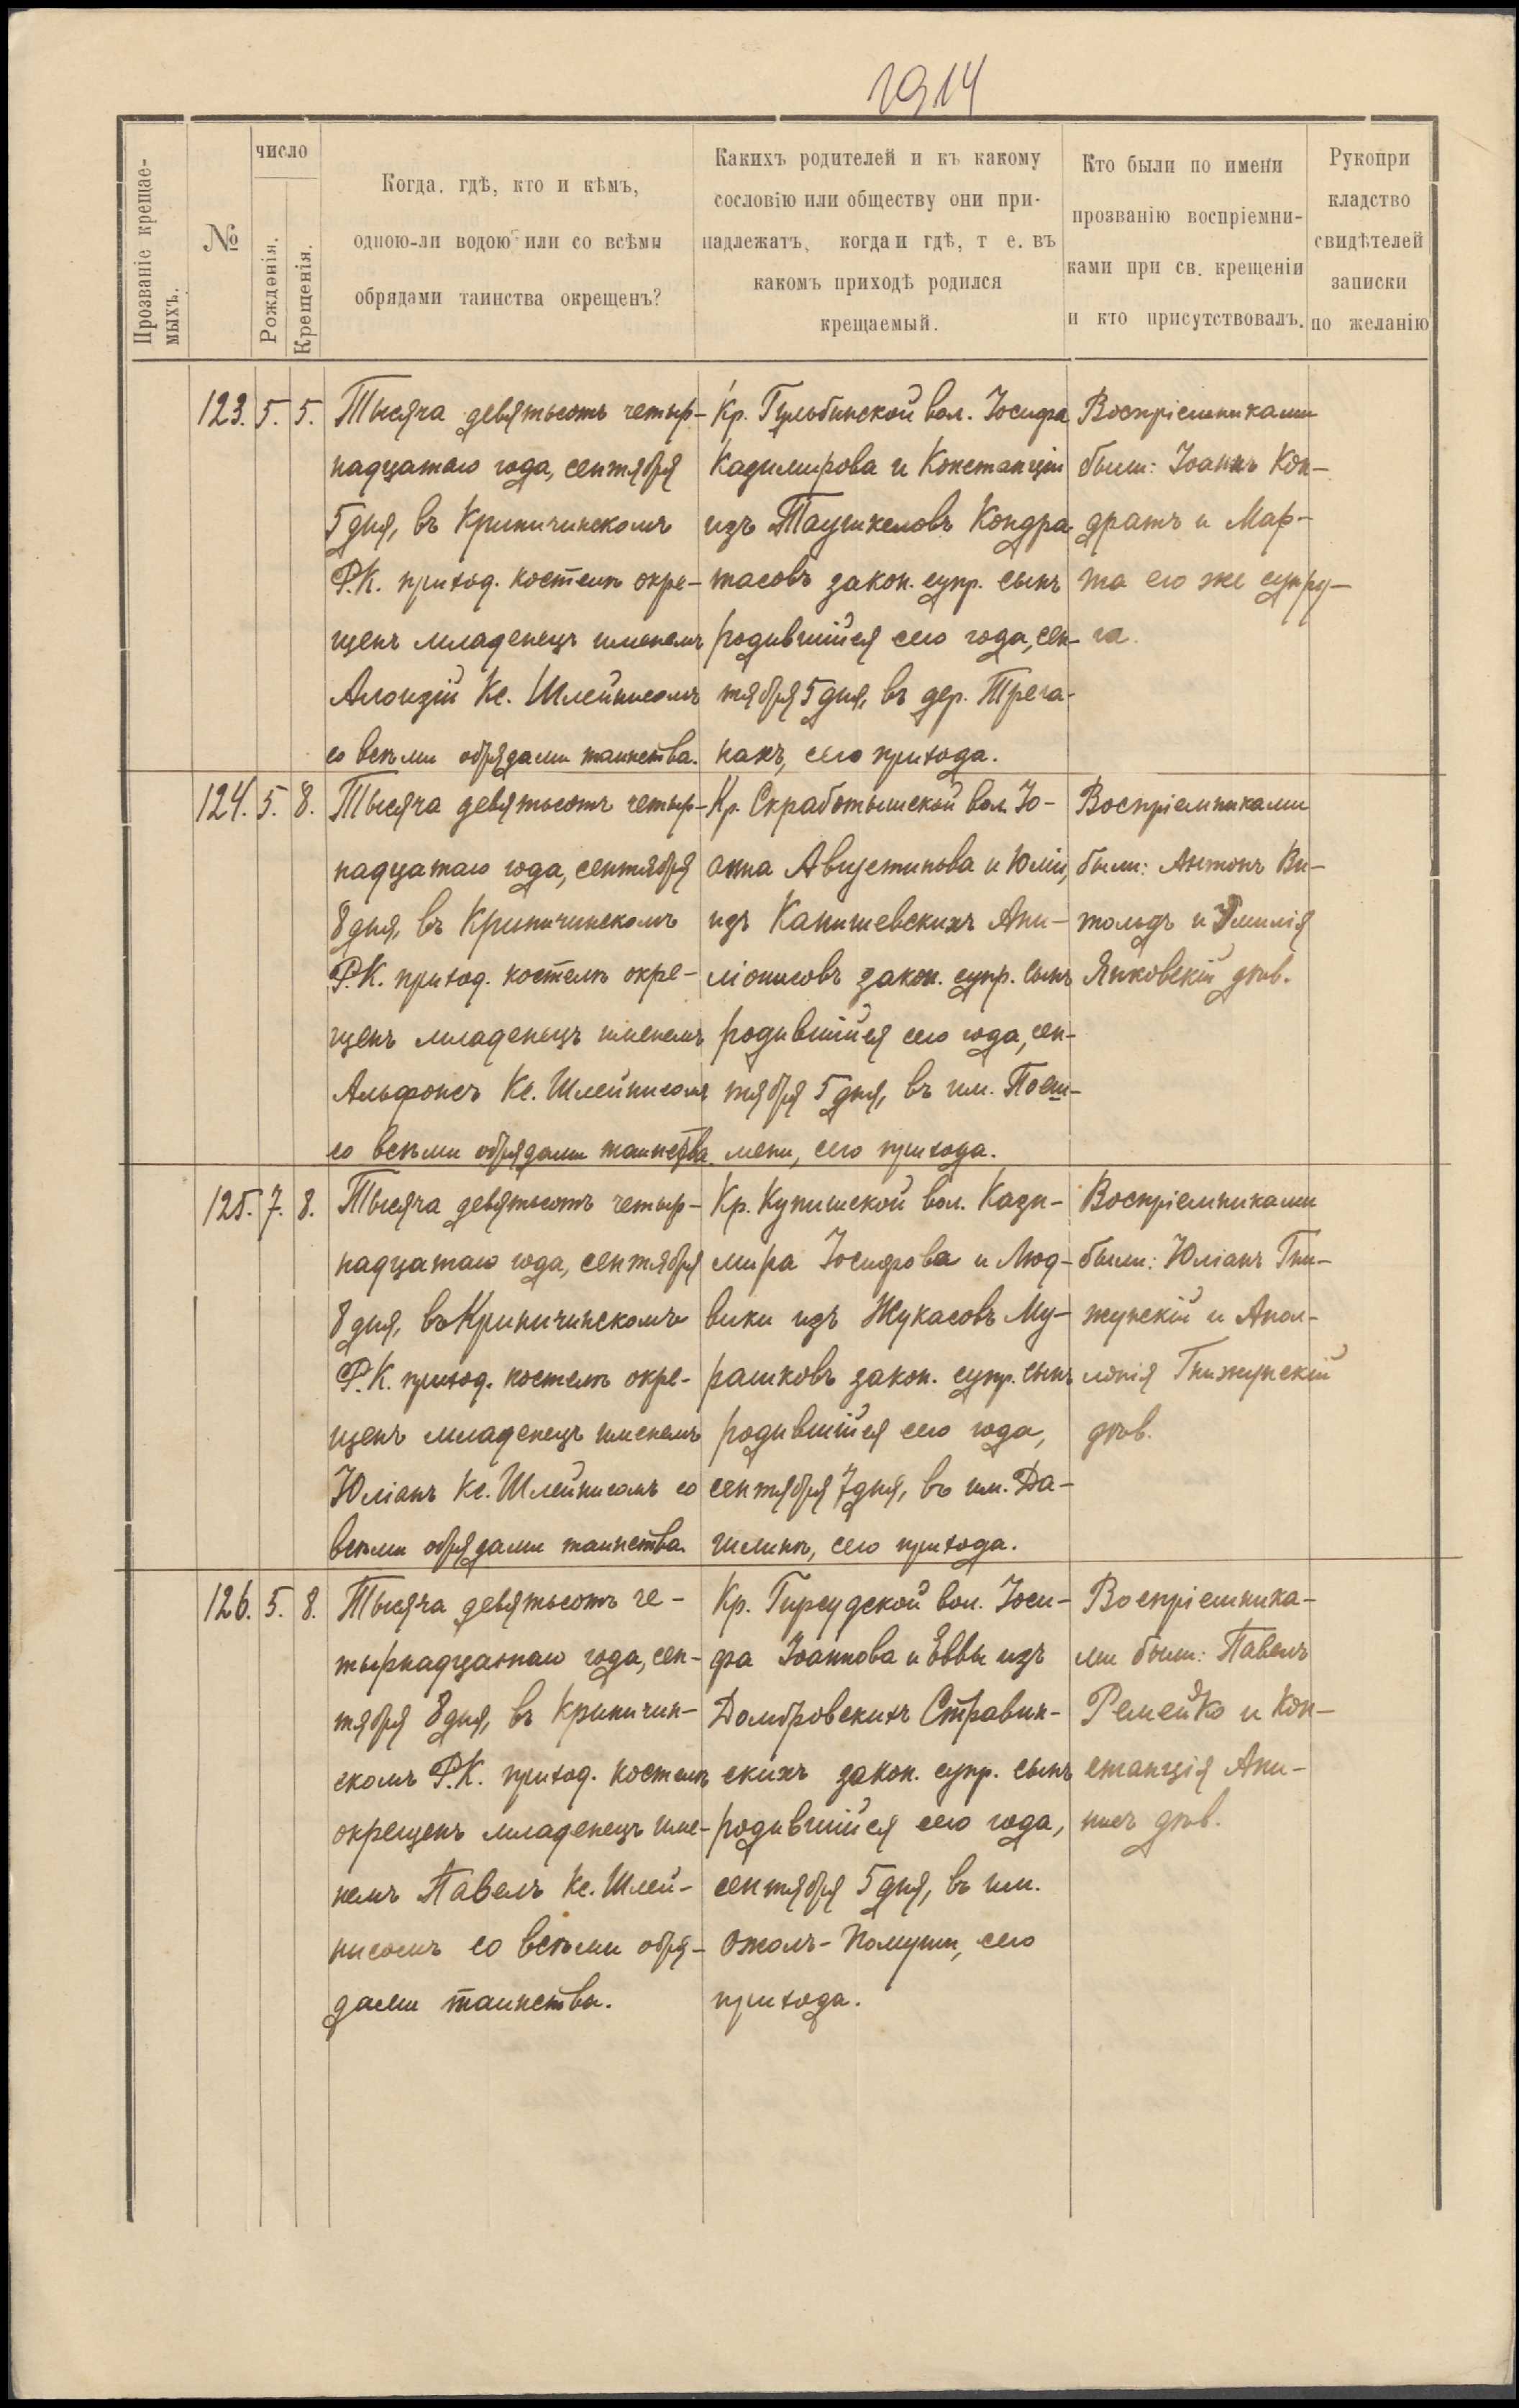 1914
Прозваніе крещае-
мыхъ.
№
число
Рожденія.
Крещенія.
Когда, гдѣ, кто и кѣмъ,
одною-ли водою или со всѣми
обрядами таинства окрещенъ?
Какихъ родителей и къ какому
сословію или обществу они при-
надлежатъ, когда и гдѣ, т е. въ
какомъ приходѣ родился
крещаемый.
Кто были по имени
прозванію воспріемни-
ками при св. крещеніи
и кто присутствовалъ.
Рукопри
кладство
свидѣтелей
записки
по желанію
123. 5. 5.
Тысяча девятьсотъ четыр-
надцатаго года, сентября
5 дня, въ Криничинскомъ
Р.К. приход. костелѣ окре-
щенъ младенецъ именемъ
Алоизій Кс. Шлейнисомъ
со всѣми обрядами таинства.
Кр. Гульбинской вол. Іосифа
Казимирова и Констанціи
изъ Таушкеловъ Кондра-
тасовъ закон. супр. сынъ
родившійся сего года, сен-
тября 5 дня, въ дер. Трега-
нахъ, сего прихода.
Воспріемниками
были: Іоаннъ Кон-
дратъ и Мар-
та его же супру-
га.
124. 5. 8.
Тысяча девятьсотъ четыр-
надцатаго года, сентября
8 дня, въ Криничинскомъ
Р.К. приход. костелѣ окре-
щенъ младенецъ именемъ
Альфонсъ Кс. Шлейнисомъ
со всѣми обрядами таинства.
Кр. Скработышской вол. Іо-
анна Августинова и Юліи,
изъ Канишевскихъ Ани-
ліонисовъ закон. супр. сынъ
родившійся сего года, сен-
тября 5 дня, въ им. Поеш-
мени, сего прихода.
Воспріемниками
были: Антонъ Ви-
тольдъ и Эмилія
Янковскій дѣв.
125. 7. 8.
Тысяча девятьсотъ четыр-
надцатаго года, сентября
8 дня, въ Криничинскомъ
Р.К. приход. костелѣ окре-
щенъ младенецъ именемъ
Юліанъ Кс. Шлейнисомъ со
всѣми обрядами таинства.
Кр. Купишской вол. Кази-
мира Іосифова и Люд-
вики изъ Жукасовъ Му-
рашковъ закон. супр. сынъ
родившійся сего года,
сентября 7 дня, въ им. Да-
гилинѣ, сего прихода.
Воспріемниками
были: Юліанъ Гни-
жунскій и Апол-
лонія Гнижунскій
дѣв.
126. 5. 8.
Тысяча девятьсотъ че-
тырнадцатаго года, сен-
тября 8 дня, въ Криничин-
скомъ Р.К. приход. костелѣ
окрещенъ младенецъ име-
немъ Павелъ Кс. Шлей-
нисомъ со всѣми обря-
дами таинства.
Кр. Гирсудской вол. Іоси-
фа Іоаннова и Еввы изъ
Домбровскихъ Стравин-
скихъ закон. супр. сынъ
родившійся сего года,
сентября 5 дня, въ им.
Ожолъ-Помуши, сего
прихода.
Воспріемника-
ми были: Павелъ
Ремейко и Кон-
станція Ани-
нисъ дѣв.